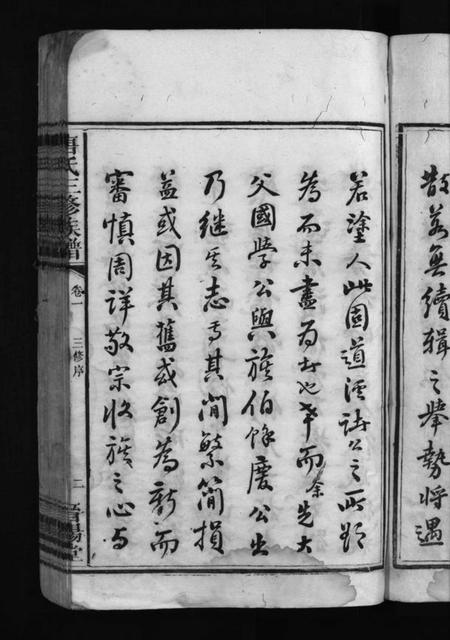 散若無續輯之舉勢將遇
若塗人此固道淫諸公之所欲
為而未盡為者也幸而余先大
父國學公與族伯餘慶公出
乃继其志焉其間繁簡損
益或因其舊或創為新而
審慎周詳敬宗收族之心与
唐氏三修族譜
卷一
三修序
二
晋陽堂